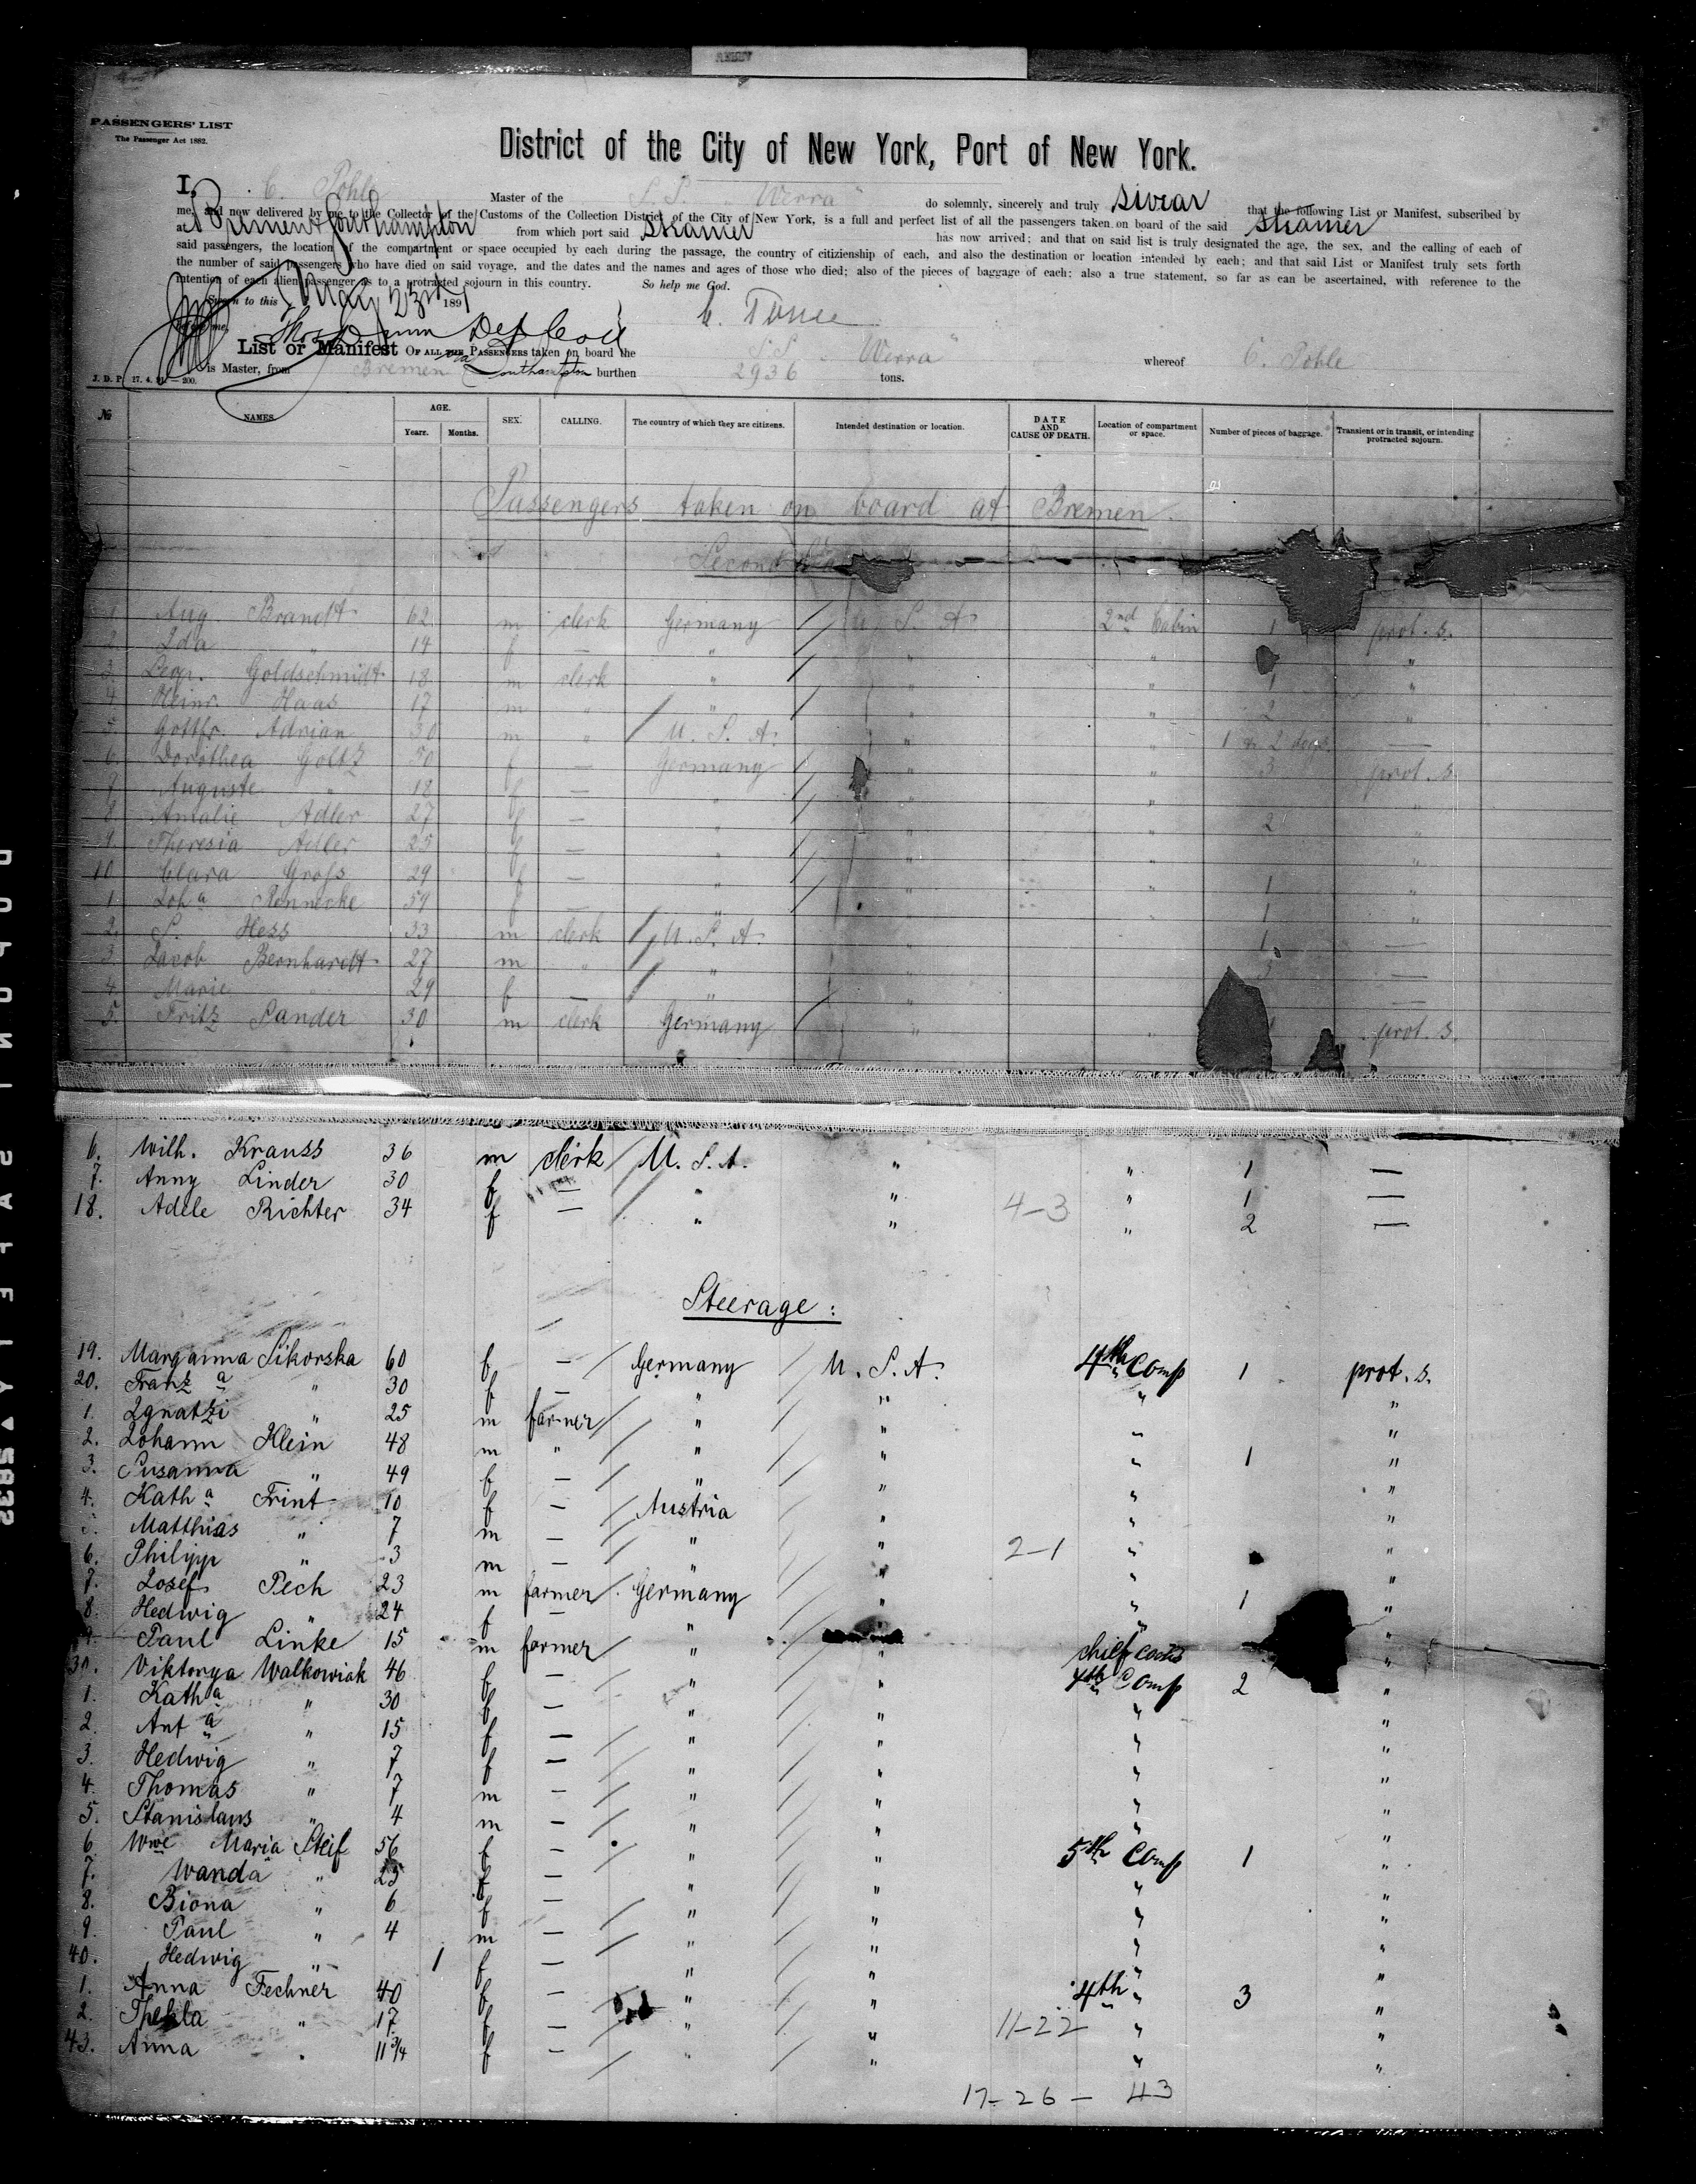 PASSENGERS' LIST
The Passenger Act 1882.
District of the City of New York, Port of New York.
I, C. Pohle Master of the S.S. "Werra" do solemnly, sincerely and truly swear that the following List or Manifest, subscribed by
me, and now delivered by me to the Collector of the Customs of the Collection District of the City of New York, is a full and perfect list of all the passengers taken on board of the said steamer
at Bremen & Southampton from which port said steamer has now arrived; and that on said list is truly designated the age, the sex, and the calling of each of
said passengers, the location of the compartment or space occupied by each during the passage, the country of citizienship of each, and also the destination or location intended by each; and that said List or Manifest truly sets forth
the number of said passengers who have died on said voyage, and the dates and the names and ages of those who died; also of the pieces of baggage of each; also a true statement, so far as can be ascertained, with reference to the
intention of each alien passenger as to a protracted sojourn in this country. So help me God.
Sworn to this May 23rd 1891
before me, Dep Coll
List or Manifest OF ALL THE PASSENGERS taken on board the S.S. "Werra" whereof C. Pohle
is Master, from Bremen via Southampton burthen 2936 tons.
J. D. P. 17. 4. 91. 200.
№ NAMES AGE. SEX. CALLING. The country of which they are citizens. Intended destination or location. DATE AND CAUSE OF DEATH. Location of compartment or space. Number of pieces of baggage. Transient or in transit, or intending protracted sojourn.
Years. Months.
Passengers taken on board at Bremen
Second
1. Aug. Brandt 62 m clerk Germany U. S. A. 2nd Cabin 1 prot. s.
2. Ida " 14 f — " " " "
3. Leop. Goldschmidt 18 m clerk " " " 1 "
4. Heinr. Haas 17 m " " " " 2 "
5. Gottfr. Adrian 30 m " U. S. A. " " 1 & 2 dogs —
6. Dorothea Goltz 50 f — Germany " " 3 prot. s.
7. Auguste " 18 f — " " " "
8 Amalie Adler 27 f — " " " 2 "
9. Theresia Adler 25 f — " " " "
10. Clara Groſs 29 f — " " " 1 "
1. Joha Rennecke 59 f — " " 1 "
2. S. Hess 33 m clerk U. S. A. " 1 —
3. Jacob Bernhardt 27 m " " " 3 —
4. Marie " 29 f — " " —
5. Fritz Sander 30 m clerk Germany " " prot. s.
6. Wilh. Krauss 36 m clerk U. S. A. " " 1 —
7. Anny Linder 30 f — " " " 1 —
18. Adele Richter 34 f — " " 4-3 " 2 —
Steerage:
19. Maryanna Sikorska 60 f — Germany U. S. A. 4th Comp 1 prot. s.
20. Franza " 30 f — " " " "
1. Ignatzi " 25 m farmer " " " "
2. Johann Klein 48 m " " " " 1 "
3. Susanna " 49 f — " " " "
4. Katha Frint 10 f — Austria " " "
5. Matthias " 7 m — " " " "
6. Philipp " 3 m — " " 2-1 " "
7. Josef Pech 23 m farmer Germany " " 1 "
8. Hedwig " 24 f — " " " "
9. Paul Linke 15 m farmer " " chief cooks "
30. Viktorya Walkowiak 46 f — " " 4th Comp 2 "
1. Katha " 30 f — " " " "
2. Anta " 15 f — " " " "
3. Hedwig " 7 f — " " " "
4. Thomas " 7 m — " " " "
5. Stanislaus " 4 m — " " " "
6 Wwe Maria Steif 56 f — " " 5th Comp 1 "
7. Wanda " 25 f — " " " "
8. Biona " 6 f — " " " "
9. Paul " 4 m — " " " "
40. Hedwig " 1 f — " " " "
1. Anna Fechner 40 f — " " 4th " 3 "
2. Thekla " 17 f — " " 11-22 " "
43. Anna " 11 3/4 f — " " " "
17-26 - 43